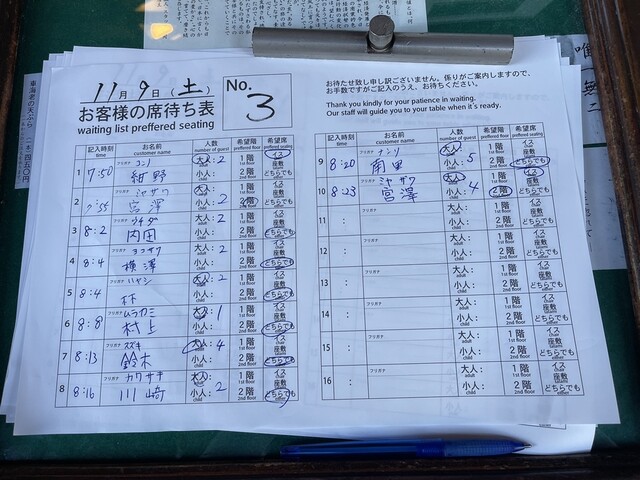 11月 9日 (土)
No. 3
お客様の席待ち表
waiting list preffered seating
お待たせ致し申し訳ございません。係りがご案内しますので、
お手数ですがご記入のうえ、お待ちください。
Thank you kindly for your patience in waiting.
Our staff will guide you to your table when it's ready.
記入時刻 time お名前 customer name 人数 number of guest 希望階 preffered floor 希望席 preffered seating
1 7:50 フリガナ コンノ 紺野 大人: 2 adult 小人: child 1階 1st floor 2階 2nd floor イス 座敷 どちらでも
2 7:55 フリガナ ミヤザワ 宮澤 大人: adult 小人: 2 child 1階 1st floor 2階 2nd floor イス 座敷 どちらでも
3 8:2 フリガナ 内田 大人: 2 adult 小人: child 1階 1st floor 2階 2nd floor イス 座敷 どちらでも
4 8:4 フリガナ ヨコザワ 横澤 大人: 2 adult 小人: child 1階 1st floor 2階 2nd floor イス 座敷 どちらでも
5 8:4 フリガナ ハヤシ 林 大人: 2 adult 小人: child 1階 1st floor 2階 2nd floor イス 座敷 どちらでも
6 8:8 フリガナ ムラカミ 村上 大人: 1 adult 小人: child 1階 1st floor 2階 2nd floor イス 座敷 どちらでも
7 8:13 フリガナ スズキ 鈴木 大人: 4 adult 小人: child 1階 1st floor 2階 2nd floor イス 座敷 どちらでも
8 8:16 フリガナ カワサキ 川崎 大人: adult 小人: 2 child 1階 1st floor 2階 2nd floor イス 座敷 どちらでも
記入時刻 time お名前 customer name 人数 number of guest 希望階 preffered floor 希望席 preffered seating
9 8:20 フリガナ 南里 大人: 5 adult 小人: child 1階 1st floor 2階 2nd floor イス 座敷 どちらでも
10 8:23 フリガナ ミヤザワ 宮澤 大人: 4 adult 小人: child 1階 1st floor 2階 2nd floor イス 座敷 どちらでも
11 : フリガナ 大人: adult 小人: child 1階 1st floor 2階 2nd floor イス 座敷 どちらでも
12 : フリガナ 大人: adult 小人: child 1階 1st floor 2階 2nd floor イス 座敷 どちらでも
13 : フリガナ 大人: adult 小人: child 1階 1st floor 2階 2nd floor イス 座敷 どちらでも
14 : フリガナ 大人: adult 小人: child 1階 1st floor 2階 2nd floor イス 座敷 どちらでも
15 : フリガナ 大人: adult 小人: child 1階 1st floor 2階 2nd floor イス 座敷 どちらでも
16 : フリガナ 大人: adult 小人: child 1階 1st floor 2階 2nd floor イス 座敷 どちらでも
唯一無二